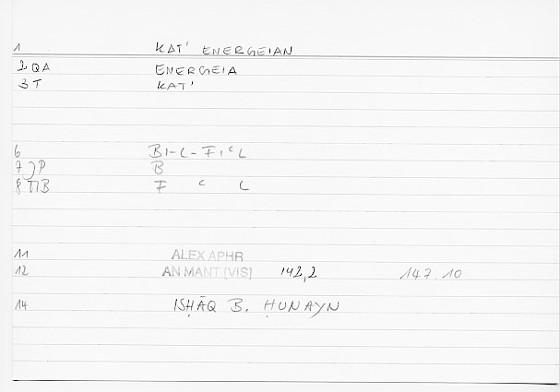 1 KAT' ENERGEIAN
2 QA ENERGEIA
3 T KAT'
6 BI-L-FIʿL
7 JP B
8 TIB F ʿ L
11 ALEX APHR
12 AN MANT (VIS) 142,2 147.10
14 ISḤĀQ B. ḤUNAYN